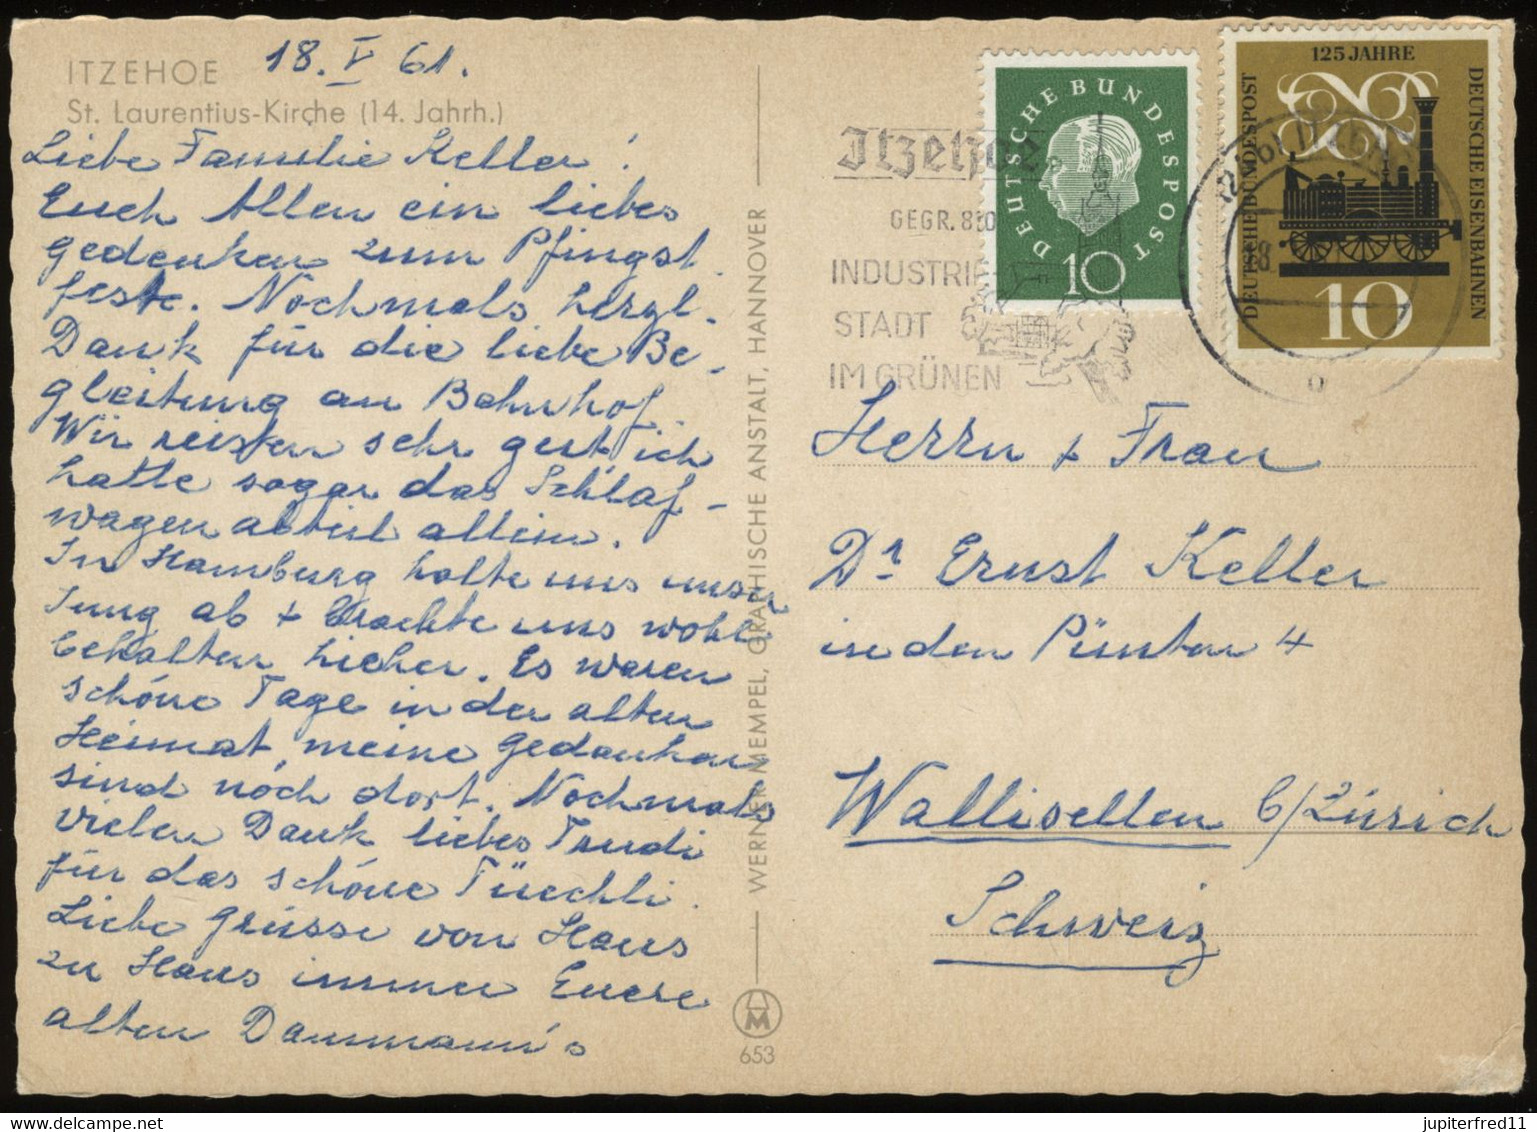 ITZEHOE
St. Laurentius-Kirche (14. Jahrh.)
18. V 61.
Liebe Familie Keller!
Euch Allen ein liebes
gedenken zum Pfingst
feste. Nochmals herzl.
Dank für die liebe Be-
gleitung am Bahnhof.
Wir reisten sehr gut ich
hatte sogar das Schlaf-
wagen abteil allein.
In Hamburg holte uns unser
Jung ab + brachte uns wohl
behalten hieher. Es waren
schöne Tage in der alten
Heimat, meine gedanken
sind noch dort. Nochmals
vielen Dank liebes Trudi
für das schöne Tüechli.
Liebe grüsse von Haus
zu Haus immer Eure
alten Dammann's
WERNER MEMPEL, GRAPHISCHE ANSTALT, HANNOVER
M
653
Itzehoe
GEGR. 810
INDUSTRIE
STADT
IM GRÜNEN
DEUTSCHE BUNDESPOST
10
125 JAHRE
DEUTSCHE EISENBAHNEN
DEUTSCHE BUNDESPOST
10
Herrn + Frau
Dr Ernst Keller
in den Püntен 4
Wallisellen b/Zürich
Schweiz
jupiterfred11